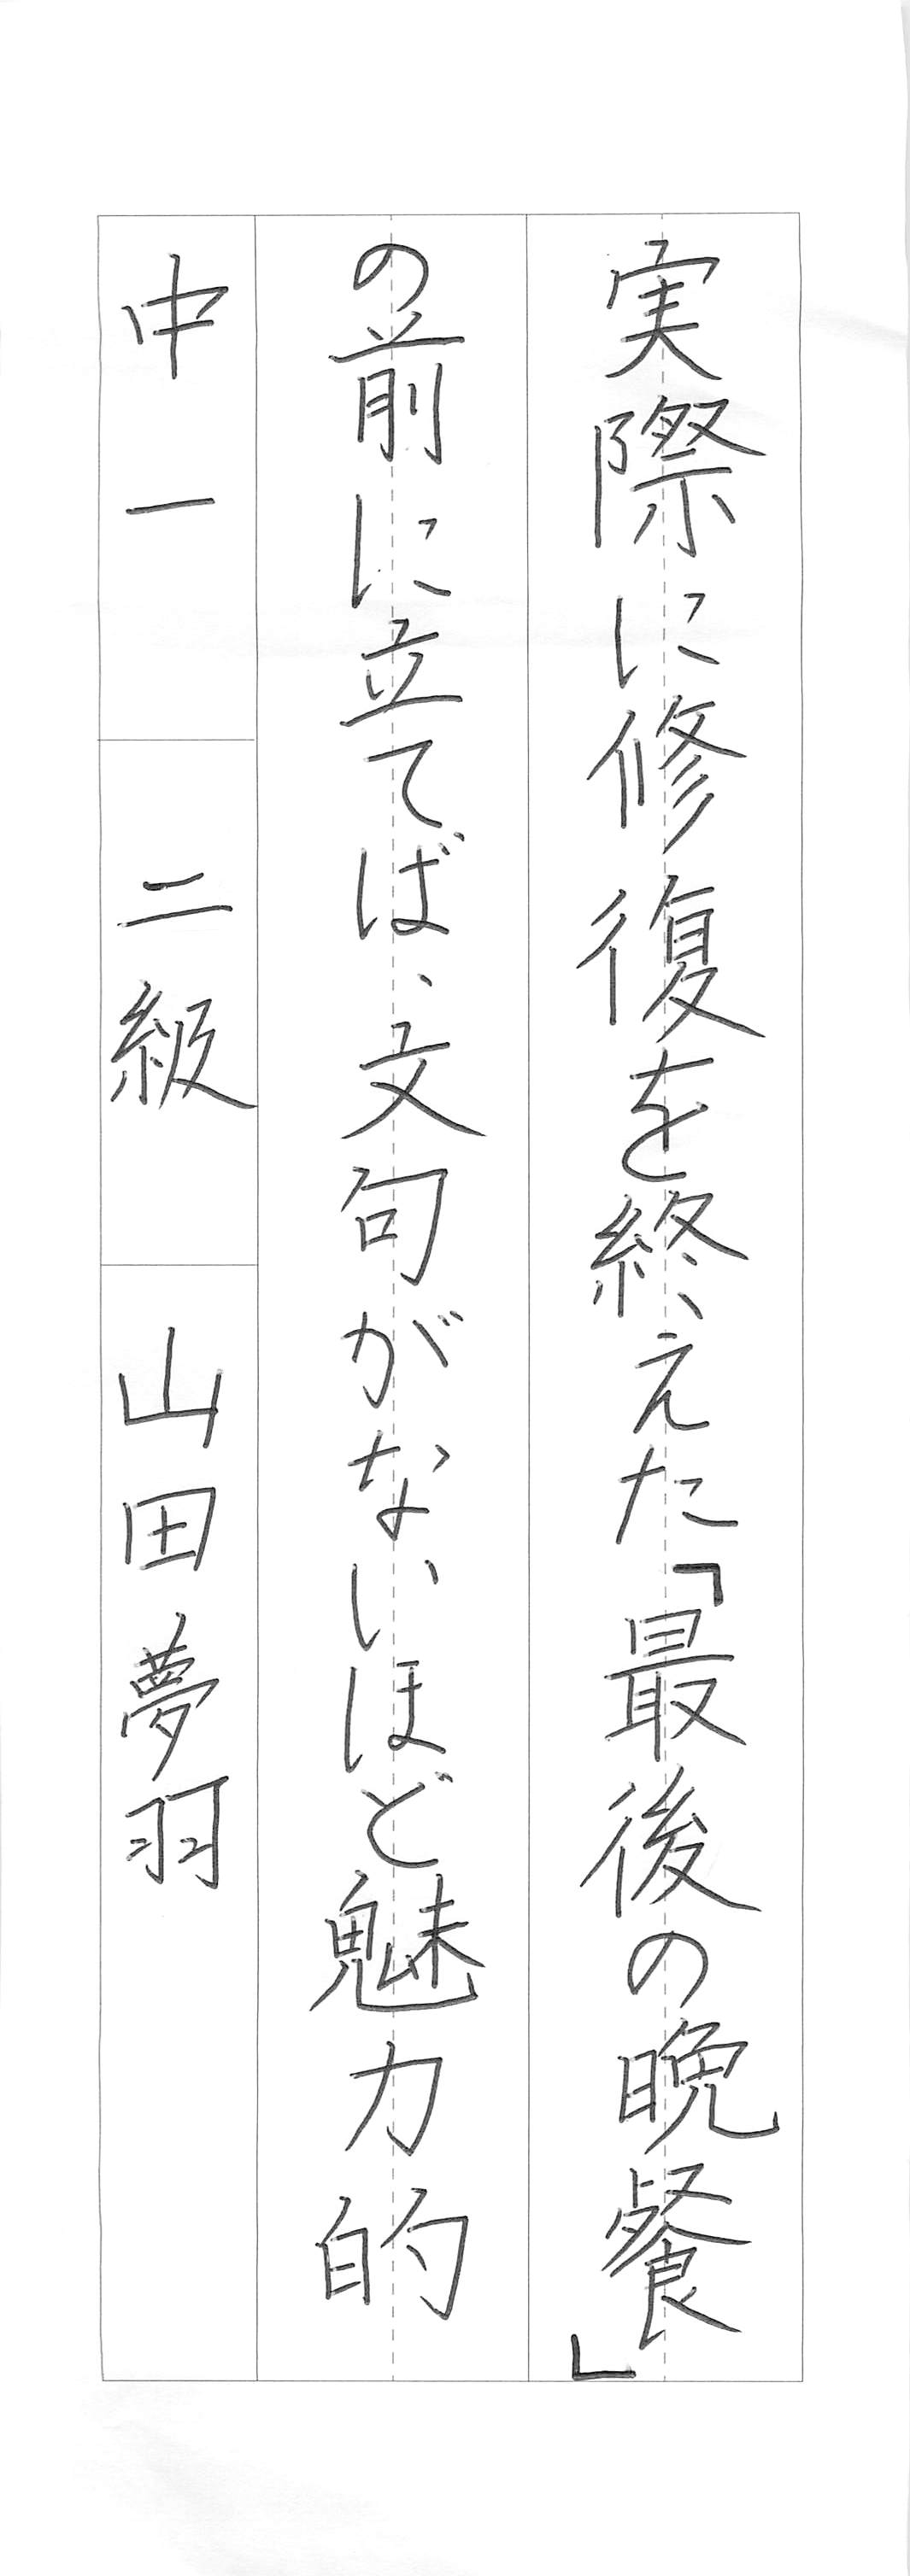 実際に修復を終えた「最後の晩餐」
の前に立てば、文句がないほど魅力的
中一 二級 山田夢羽